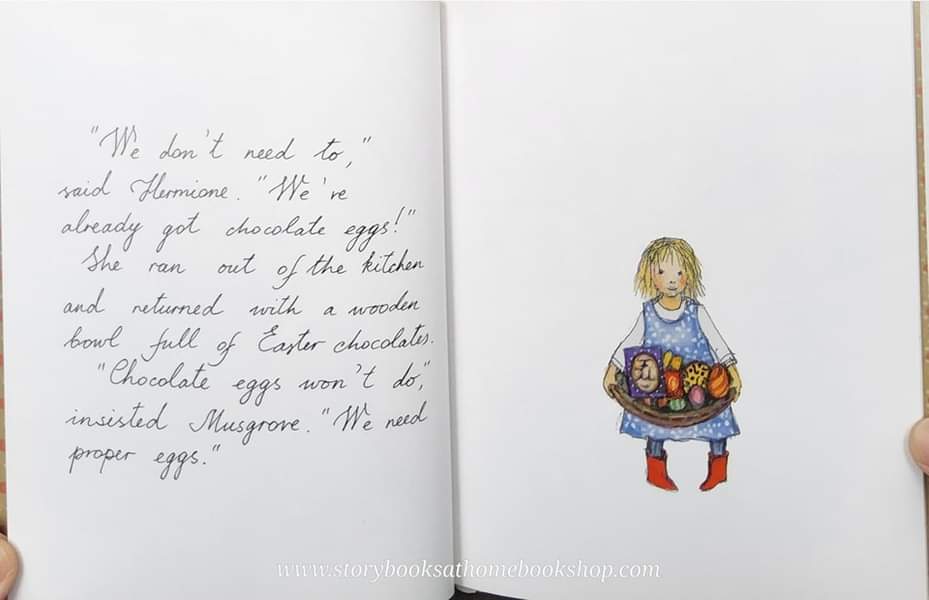 "We don't need to,"
said Hermione. "We've
already got chocolate eggs!"
She ran out of the kitchen
and returned with a wooden
bowl full of Easter chocolates.
"Chocolate eggs won't do,"
insisted Musgrove. "We need
proper eggs."
www.storybooksathomebookshop.com